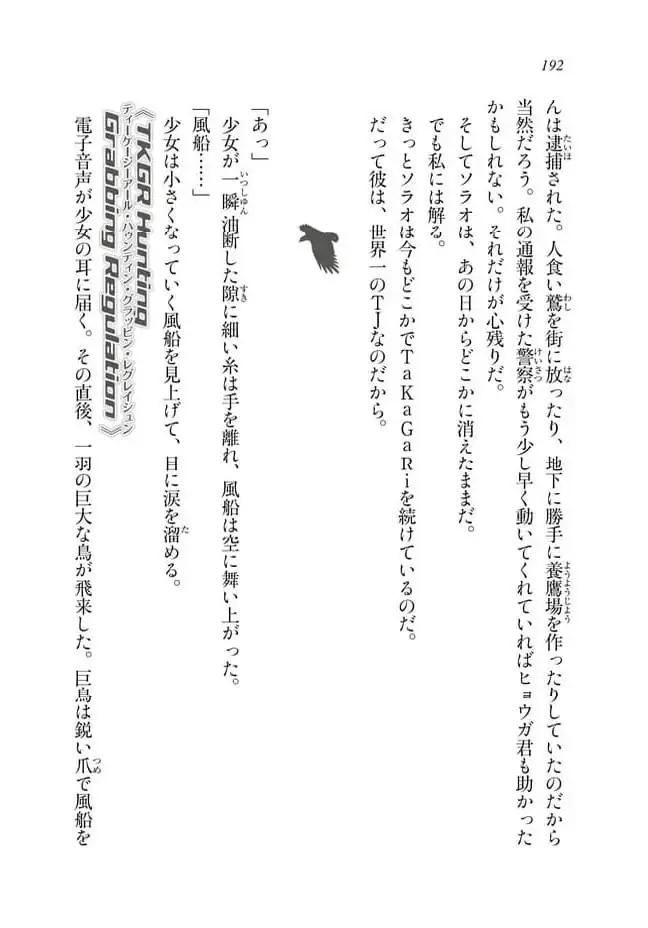 192
んは逮捕された。人食い鷲を街に放ったり、地下に勝手に養鷹場を作ったりしていたのだから
当然だろう。私の通報を受けた警察がもう少し早く動いてくれていればヒョウガ君も助かった
かもしれない。それだけが心残りだ。
そしてソラオは、あの日からどこかに消えたままだ。
でも私には解る。
きっとソラオは今もどこかでTaKaGaRiを続けているのだ。
だって彼は、世界一のTJなのだから。
「あっ」
少女が一瞬油断した隙に細い糸は手を離れ、風船は空に舞い上がった。
「風船……」
少女は小さくなっていく風船を見上げて、目に涙を溜める。
《TKGR Hunting Grabbing Regulation》
ティーケージーアール・ハゥンティン・グラッピン・レグレイシュン
電子音声が少女の耳に届く。その直後、一羽の巨大な鳥が飛来した。巨鳥は鋭い爪で風船を